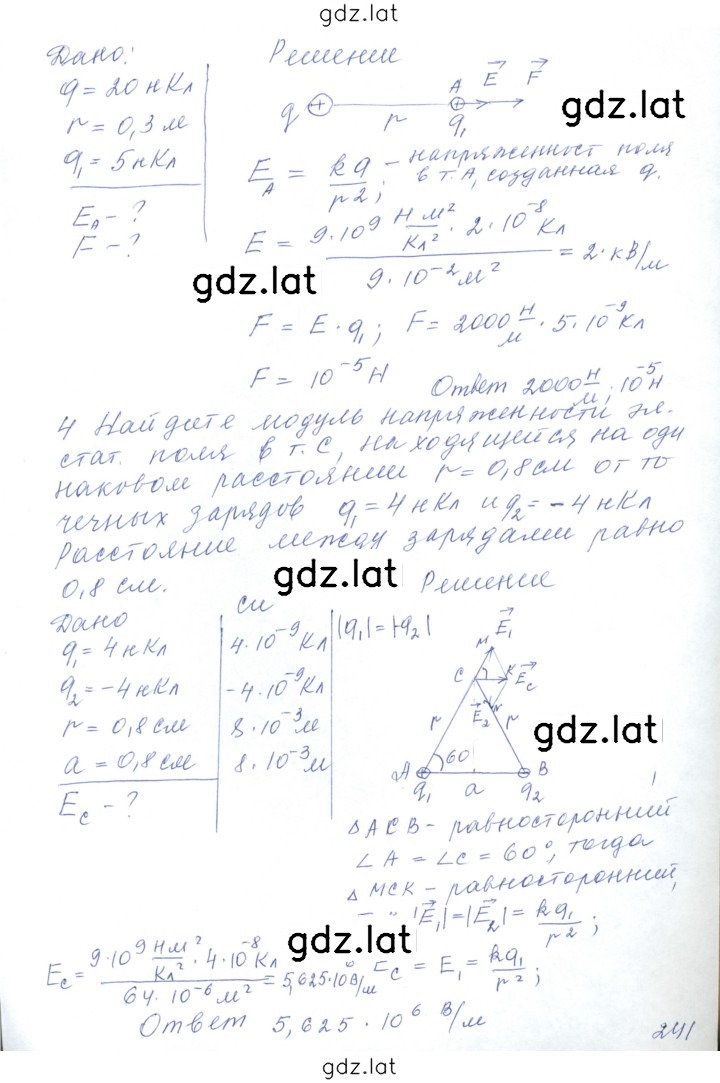 gdz.lat
Дано: Решение
q = 20 нКл
r = 0,3 м
q₁ = 5 нКл
E_A - ?
F - ?
q r A q₁ E⃗ F⃗
gdz.lat
E_A = kq/r²; – напряженност поля
в т. А, созданная q.
E = 9·10⁹ Н м²/Кл² · 2·10⁻⁸ Кл / 9·10⁻² м² = 2·кВ/м
gdz.lat
F = E·q₁; F = 2000 Н/м · 5·10⁻⁹ Кл
F = 10⁻⁵ Н Ответ 2000 Н/м; 10⁻⁵ Н
4 Найдите модуль напряженности эл.
стат. поля в т. С, находящейся на оди
наковом расстоянии r = 0,8 см от то
чечных зарядов q₁ = 4 нКл и q₂ = -4 нКл
Расстояние между зарядами равно
0,8 см.
gdz.lat
Решение
Дано СИ
q₁ = 4 нКл 4·10⁻⁹ Кл |q₁| = |-q₂|
q₂ = -4 нКл -4·10⁻⁹ Кл
r = 0,8 см 8·10⁻³ м
a = 0,8 см 8·10⁻³ м
E_C - ?
M E⃗₁
C K E⃗_C
E⃗₂ N
r r
gdz.lat
A 60 B
q₁ a q₂
△ACB - равносторонний
∠A = ∠C = 60°, тогда
△MCK - равносторонний,
— „ |E⃗₁| = |E⃗₂| = kq₁/r²;
gdz.lat
E_C = 9·10⁹ Нм²/Кл² · 4·10⁻⁸ Кл / 64·10⁻⁶ м² = 5,625·10⁶ В/м E_C = E₁ = kq₁/r²;
Ответ 5,625·10⁶ В/м
241
gdz.lat